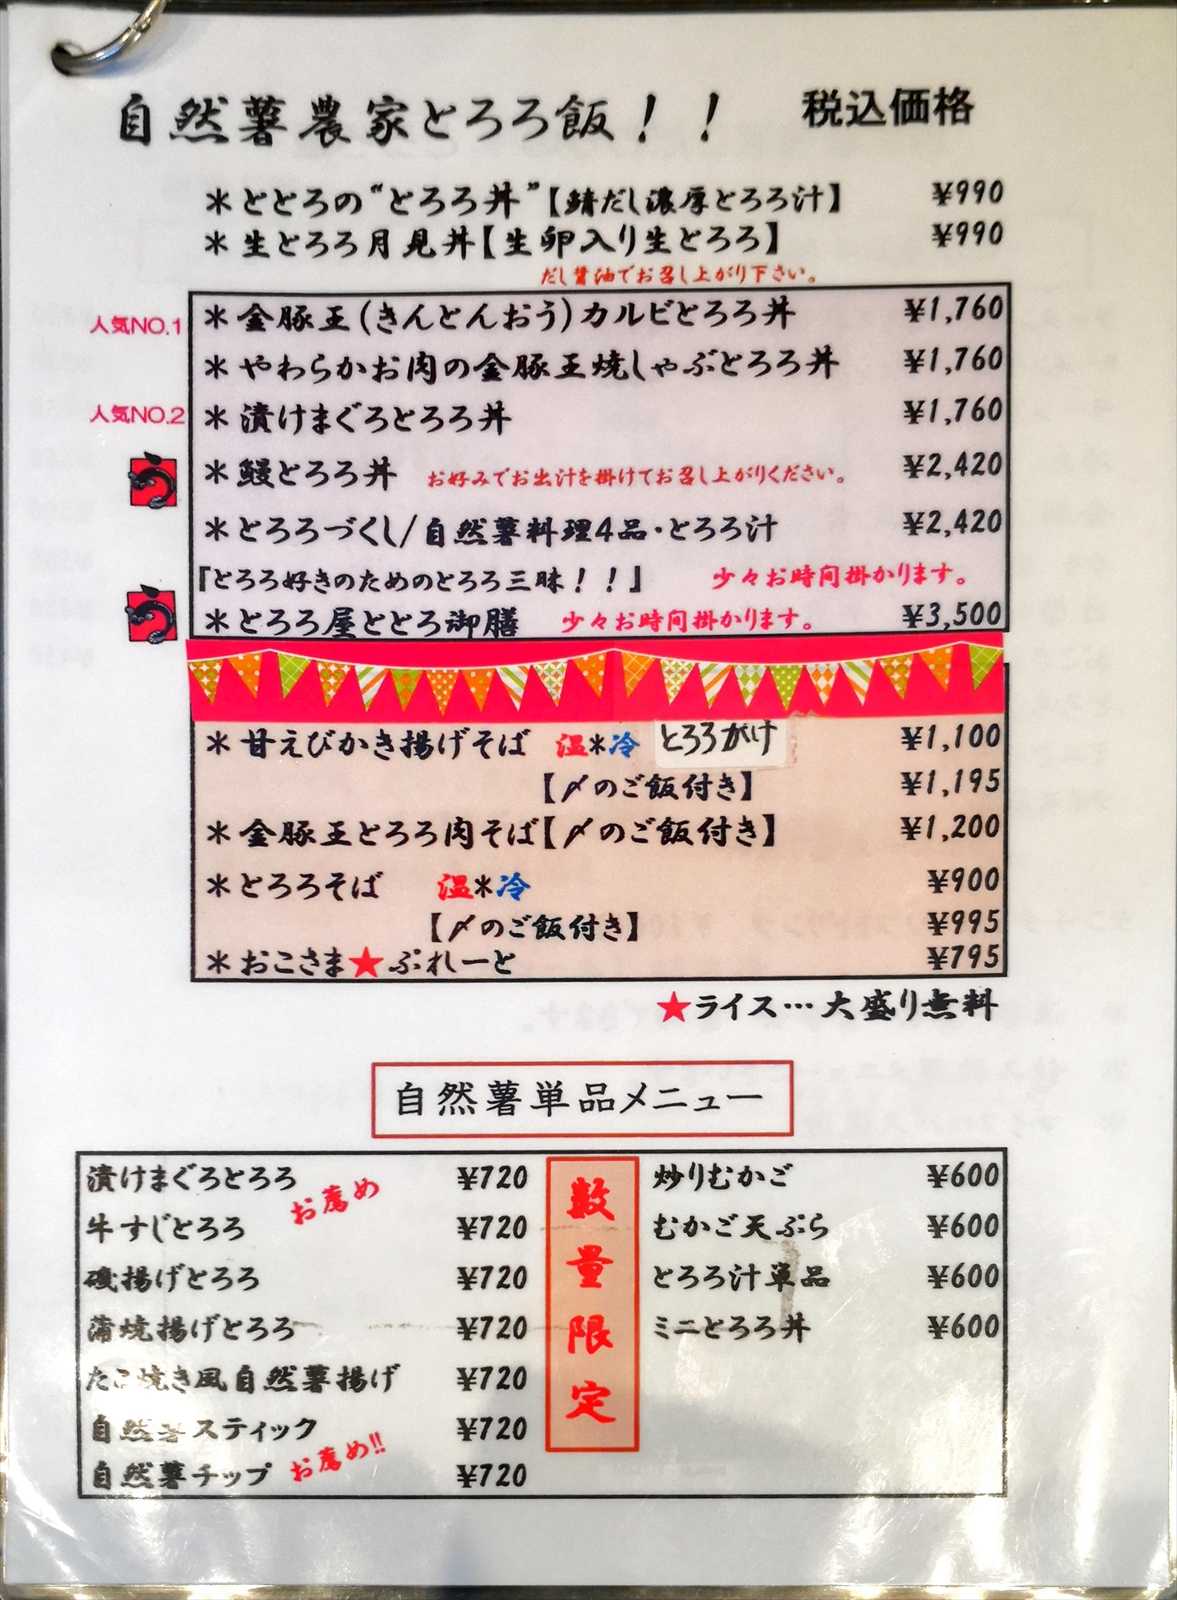 自然薯農家とろろ飯！！ 税込価格
＊ととろの“とろろ丼”【鯖だし濃厚とろろ汁】 ¥990
＊生とろろ月見丼【生卵入り生とろろ】 ¥990
だし醤油でお召し上がり下さい。
人気NO.1 ＊金豚王(きんとんおう)カルビとろろ丼 ¥1,760
＊やわらかお肉の金豚王焼しゃぶとろろ丼 ¥1,760
人気NO.2 ＊漬けまぐろとろろ丼 ¥1,760
う ＊鰻とろろ丼 お好みでお出汁を掛けてお召し上がりください。 ¥2,420
＊とろろづくし/自然薯料理4品・とろろ汁 ¥2,420
『とろろ好きのためのとろろ三昧！！』 少々お時間掛かります。
う ＊とろろ屋ととろ御膳 少々お時間掛かります。 ¥3,500
＊甘えびかき揚げそば 温＊冷 とろろがけ ¥1,100
【〆のご飯付き】 ¥1,195
＊金豚王とろろ肉そば【〆のご飯付き】 ¥1,200
＊とろろそば 温＊冷 ¥900
【〆のご飯付き】 ¥995
＊おこさま★ぷれーと ¥795
★ライス…大盛り無料
自然薯単品メニュー
漬けまぐろとろろ ¥720
お薦め
牛すじとろろ ¥720
磯揚げとろろ ¥720
蒲焼揚げとろろ ¥720
たこ焼き風自然薯揚げ ¥720
自然薯スティック ¥720
自然薯チップ お薦め!! ¥720
数量限定
炒りむかご ¥600
むかご天ぷら ¥600
とろろ汁単品 ¥600
ミニとろろ丼 ¥600